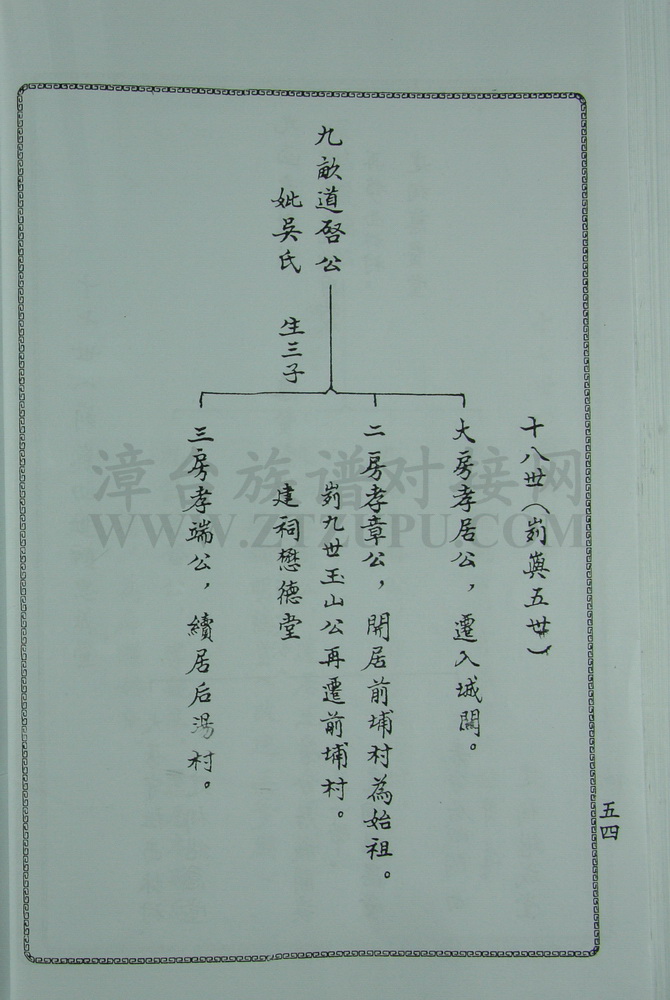 九畝道啓公
妣吳氏
生三子
十八世（莿與五世）
大房孝居公，遷入城關。
二房孝章公，開居前埔村為始祖。
莿九世玉山公再遷前埔村。
建祠懋德堂
三房孝端公，續居后湯村。
五四
漳台族谱对接网
WWW.ZTZUPU.COM